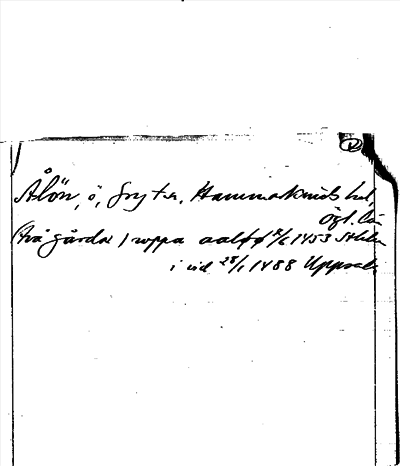 Ålön, ö, Gryt sn, Hammarkinds hd,
Ögl. län
(två gårdar) uppa aaløø 1453 Sthlm
i vid 28/1 1488 Uppsala